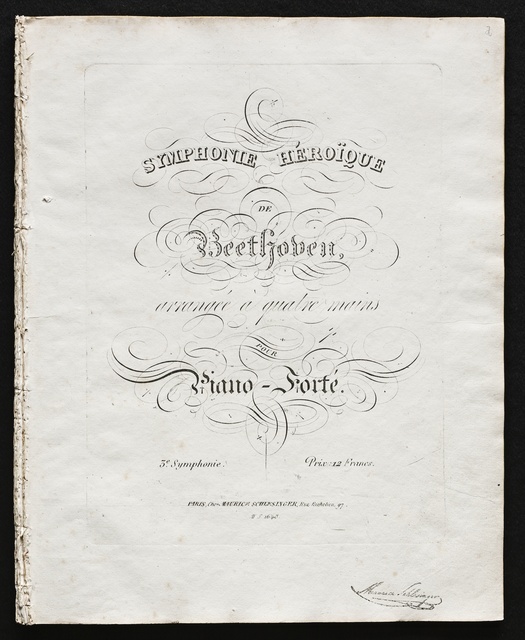 SYMPHONIE HÉROÏQUE
DE
Beethoven,
arrangée à quatre mains
POUR
Piano-Forté.
3e Symphonie. Prix: 12 Francs.
PARIS, Chez MAURICE SCHLESINGER, Rue Richelieu, 97.